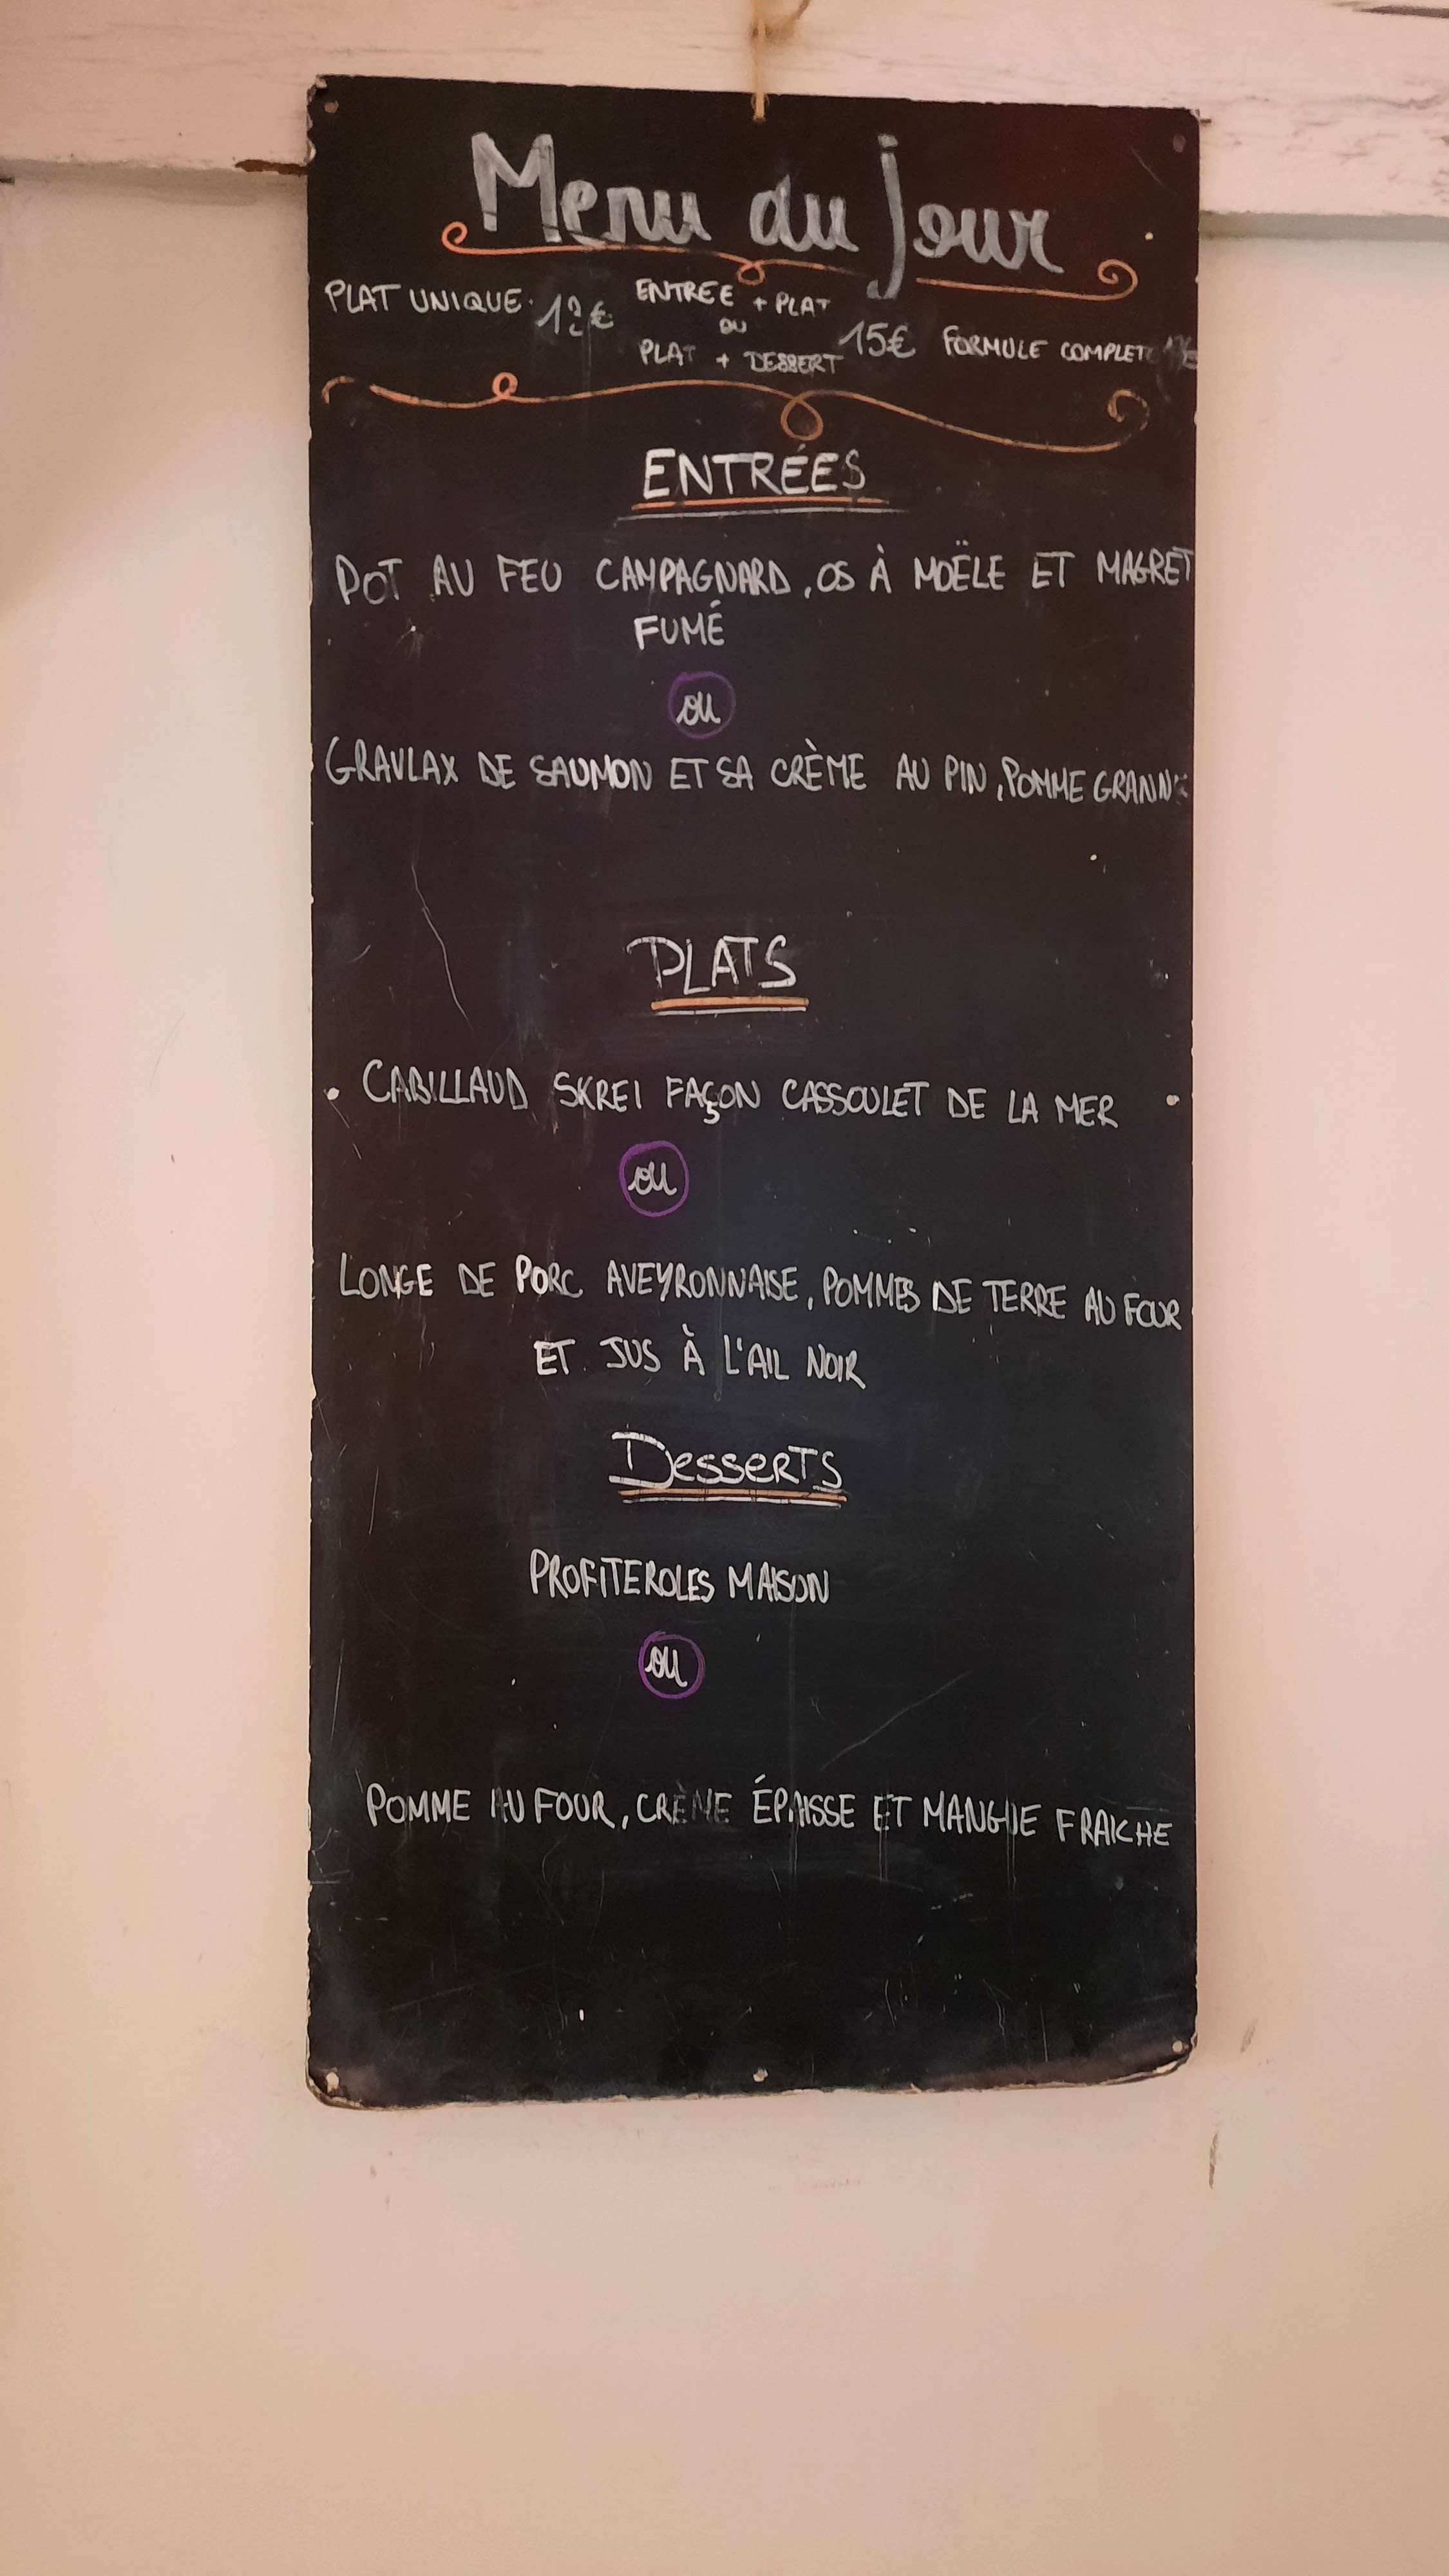 Menu du jour
PLAT UNIQUE
ENTREE + PLAT
OU
PLAT + DESSERT
15€
FORMULE COMPLET
ENTRÉES
POT AU FEU CAMPAGNARD, OS À MOËLE ET MAGRET
FUMÉ
ou
GRAVLAX DE SAUMON ET SA CRÈME AU PIN, POMME
PLATS
CABILLAUD SKREI FAÇON CASSOULET DE LA MER
ou
LONGE DE PORC AVEYRONNAISE, POMMES DE TERRE AU FOUR
ET JUS À L'AIL NOIR
DESSERTS
PROFITEROLES MAISON
ou
POMME AU FOUR, CRÈME ÉPAISSE ET MANGUE FRAICHE